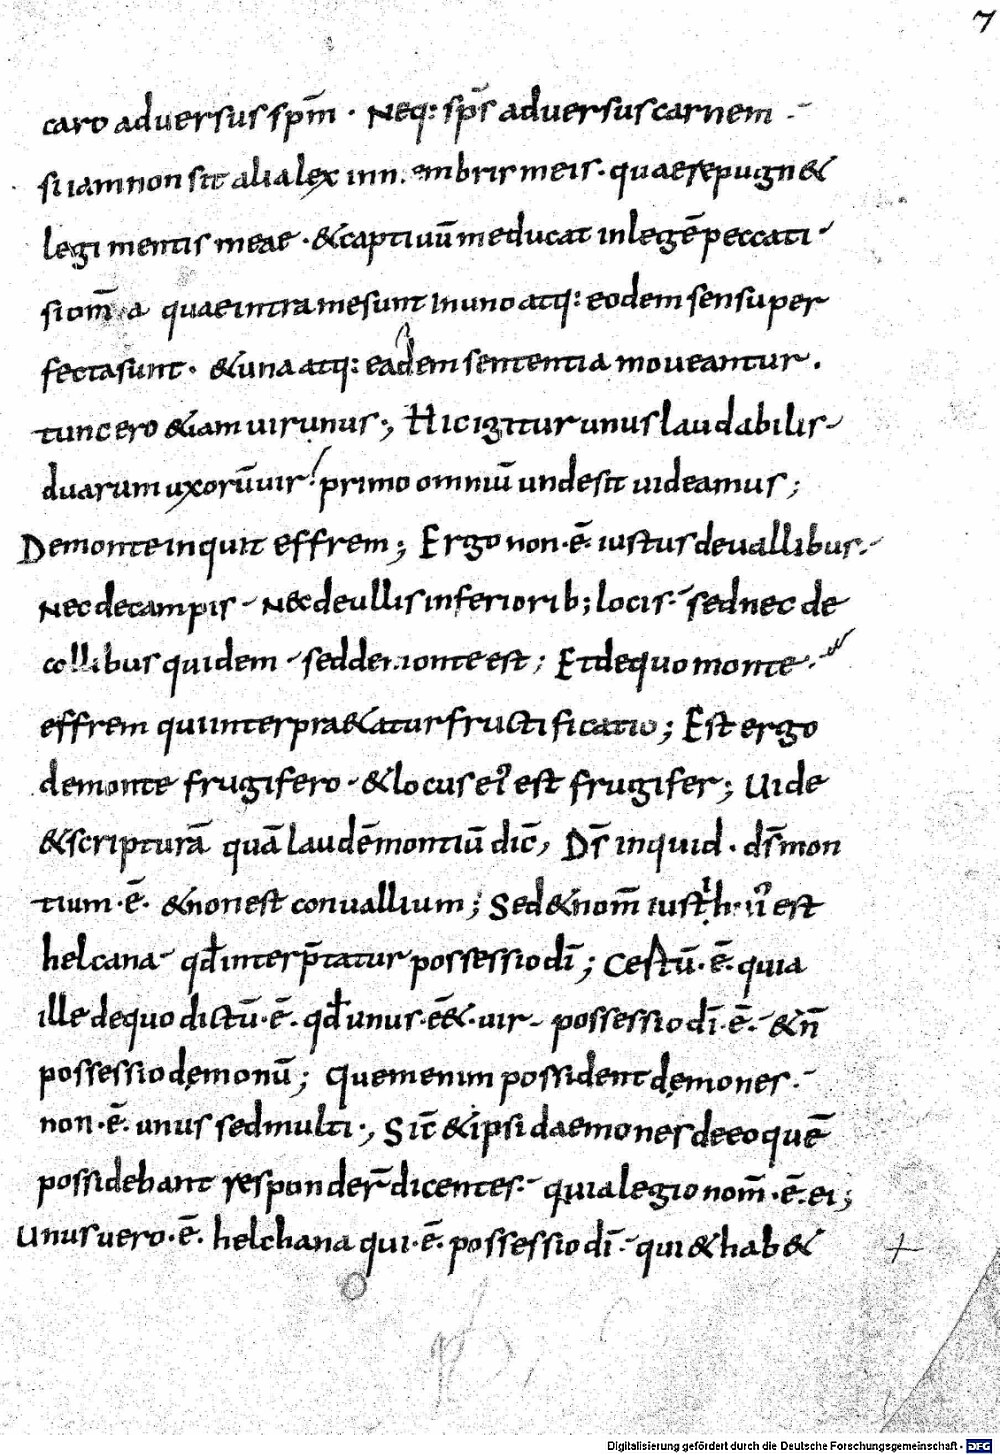 7
caro adversus sp̄m · Neq: sp̄s adversus carnem -
si iam non sit alia lex in membris meis · quae repugn&
legi mentis meae · & captiuū me ducat in legē peccati
si om̄ia quae intra me sunt in uno atq: eodem sensu per
fecta sunt · & una atq: eadem sententia moveantur .
tunc ero &iam vir unus ·, Hic igitur unus laudabilis
duarum uxorū vir ! primo omniū unde sit uideamus ;
De monte inquit effrem ; Ergo non · ē · iustus de uallibus .-
Nec de campis - Nec de ullis inferiorib; locis .- sed nec de
collibus quidem - sed de monte est ; Et de quo monte .
effrem qui interpra&atur fructificatio ; Est ergo
de monte frugifero - & locus ei' est frugifer ; Uide
& scripturā quā laudē montiū dic̄, Ds̄ inquid · ds̄ mon
tium · ē · & non est convallium ; Sed & nom̄ iusti h · ū est
helcana - qd̄ interp̄tatur possessio dī ; Certū · ē · quia
ille de quo dictū · ē · qd̄ unus · ē& · vir - possessio dī · ē .- & n̄
possessio dęmonū ; Quem enim possident dęmones .-
non · ē · unus sed multi ·, Sic̄ & ipsi daemones de eo quē
possidebant responder̄ dicentes .- quia legio nom̄ · ē · ei ;
Unus vero · ē · helchana qui · ē · possessio dī .- qui & hab&
+
Digitalisierung gefördert durch die Deutsche Forschungsgemeinschaft - DFG